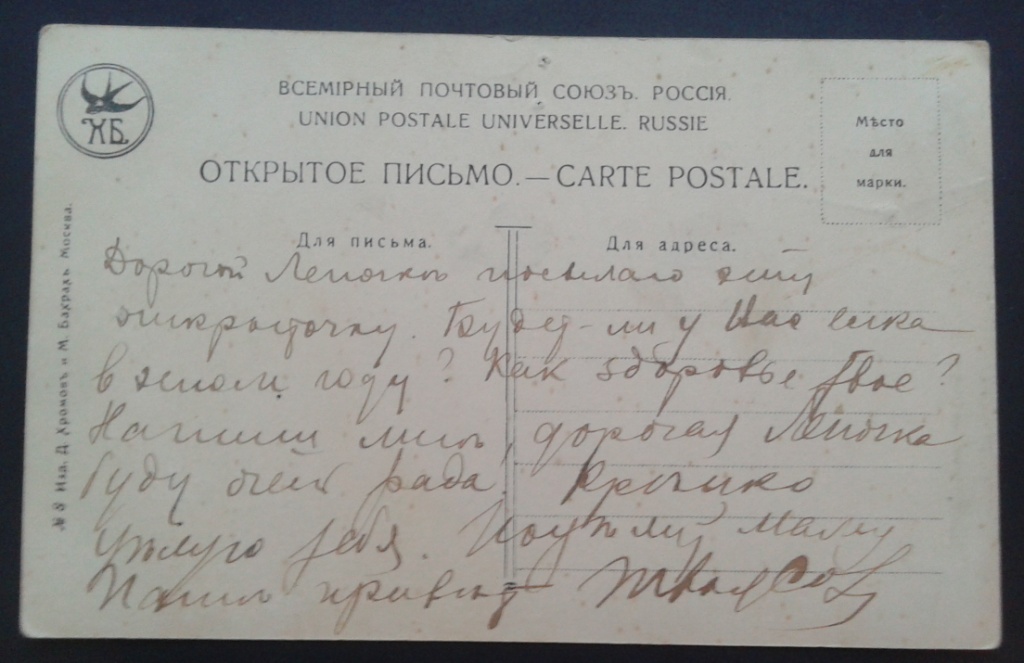 ХБ.
ВСЕМІРНЫЙ ПОЧТОВЫЙ СОЮЗЪ. РОССІЯ.
UNION POSTALE UNIVERSELLE. RUSSIE
ОТКРЫТОЕ ПИСЬМО.—CARTE POSTALE.
Мѣсто
для
марки.
Для письма.
Для адреса.
№ 8 Изд. Д. Хромовъ и М. Бахрахъ Москва.
Дорогой посылаю эту
открыточку. Будет-ли у Вас елка
в этом году? Как здоровье твое?
Напиши мнѣ, дорогая Леночка
буду очень рада! Крѣпко
цѣлую тебя. Поцѣлуй маму
привет Твоя